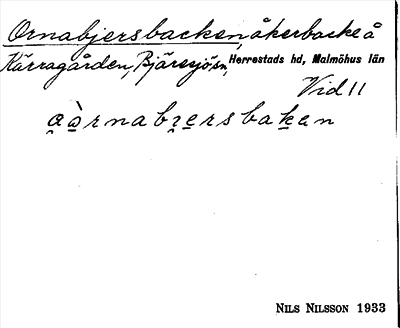 Ornabjersbacken, åkerbacke å
Kärragården, Bjäresjö sn, Herrestads hd, Malmöhus län
Vid 11
a̯òrnabɿersbaken
NILS NILSSON 1933